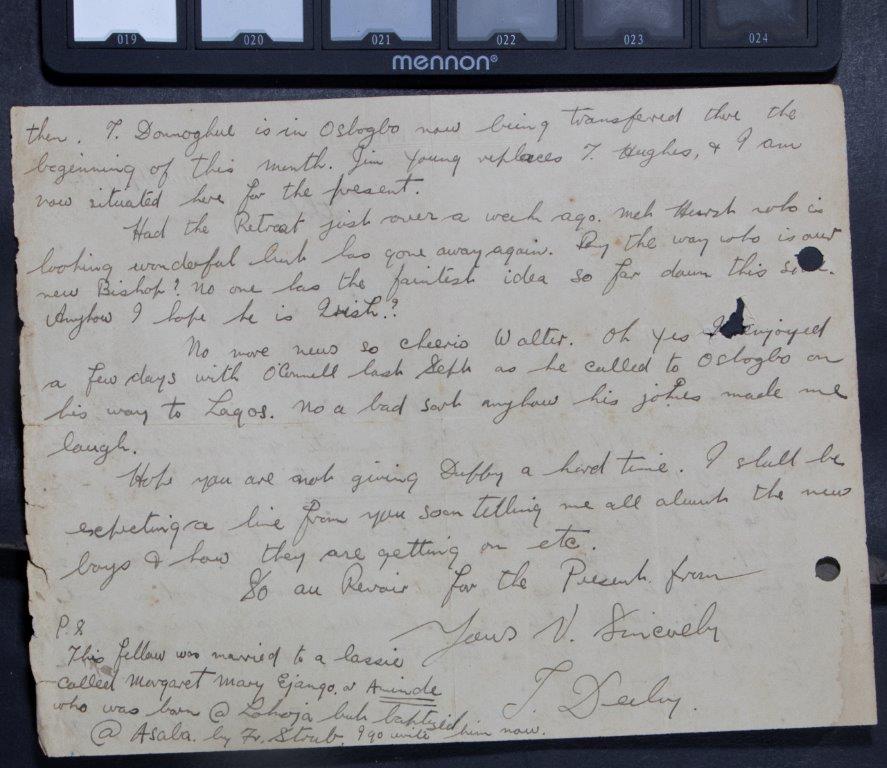 019 020 021 022 023 024
mennon®
then. T. Donnoghue is in Oshogbo now being transferred there the
beginning of this month. Jim Young replaces T. Hughes, & I am
now situated here for the present.
Had the Retreat just over a week ago. Met Hurst who is
looking wonderful but has gone away again. By the way who is our
new Bishop? No one has the faintest idea so far down this side.
Anyhow I hope he is Irish.?
No more news so cheerio Walter. Oh Yes I enjoyed
a few days with O'Connell last Sept as he called to Oshogbo on
his way to Lagos. No a bad sort anyhow his jokes made me
laugh.
Hope you are not giving Duffy a hard time. I shall be
expecting a line from you soon telling me all about the new
boys & how they are getting on etc.
So au Revoir for the Present from
Yours V. Sincerely
P.S
This fellow was married to a lassie
called Margaret Mary Ejango. or Aminde
who was born @ Lokoja but baptised
@ Asaba. by Fr. Strub. I go write him now.